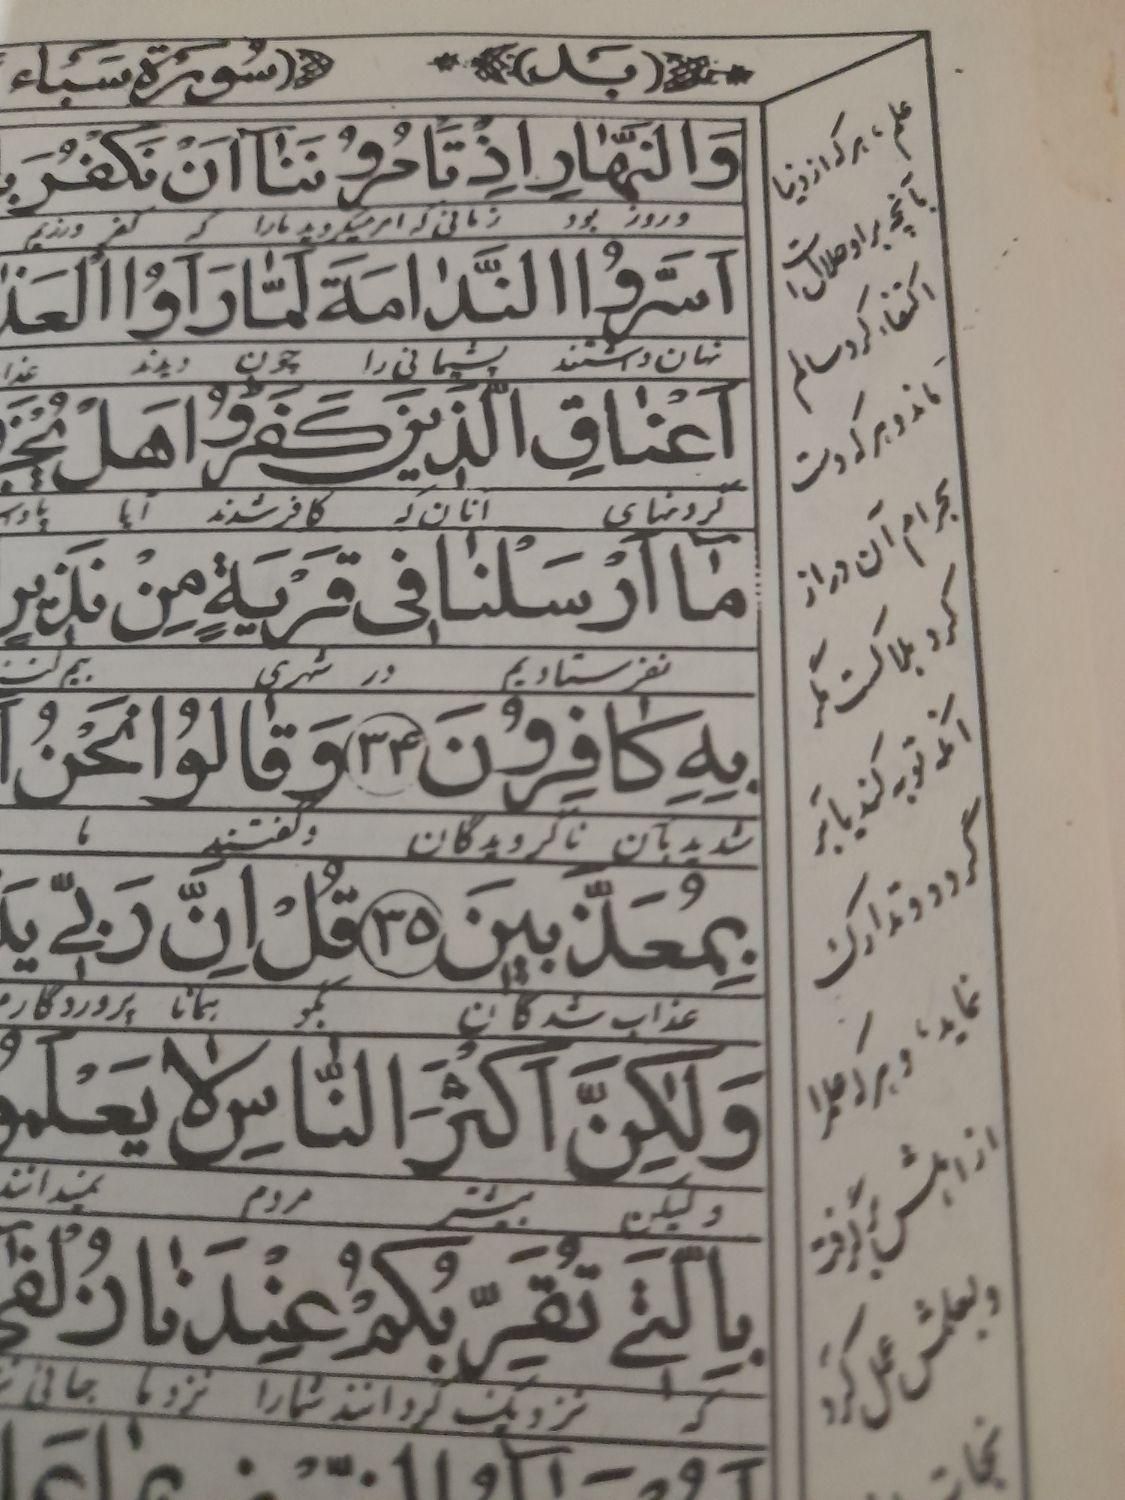 (بَد) (سُورَةُ سَبَاء
وَالنَّهَارِ اِذْ تَأْمُرُونَنَا اَنْ نَكْفُرَ
و روز بود زمانی که امر میکردید ما را که کفر ورزیم
اَسَرُّوا النَّدَامَةَ لَمَّا رَاَوُا الْعَذَا
نهان داشتند پشیمانی را چون دیدند عذا
اَعْنَاقِ الَّذِينَ كَفَرُوا هَلْ يُجْزَ
گردنهای آنان که کافر شدند آیا
مَا اَرْسَلْنَا فِي قَرْيَةٍ مِنْ نَذِيرٍ
نفرستادیم در شهری بیم کنند
بِهِ كَافِرُونَ (٣٤) وَقَالُوا نَحْنُ اَ
شدید بآن ناگرویدگان و گفتند ما
بِمُعَذَّبِينَ (٣٥) قُلْ اِنَّ رَبِّي يَ
عذاب شدگان بگو همانا پروردگارم
وَلَكِنَّ اَكْثَرَ النَّاسِ لَا يَعْلَمُو
ولیکن بیشتر مردم نمیدانند
بِالَّتِي تُقَرِّبُكُمْ عِنْدَنَا زُلْفَى
که نزدیک گردانند شما را نزد ما
علم، هر که از دنیا
بآنچه بر او حلالست
اکتفاء کرد سالم
ماند و هر که دست
بحرام آن دراز
کرد هلاکست مگر
آنکه توبه کند یا بر
گردد و تدارک
نماید، و هر که علم را
از اهلش بگرفته
و بعلمش عمل کرد
نجات